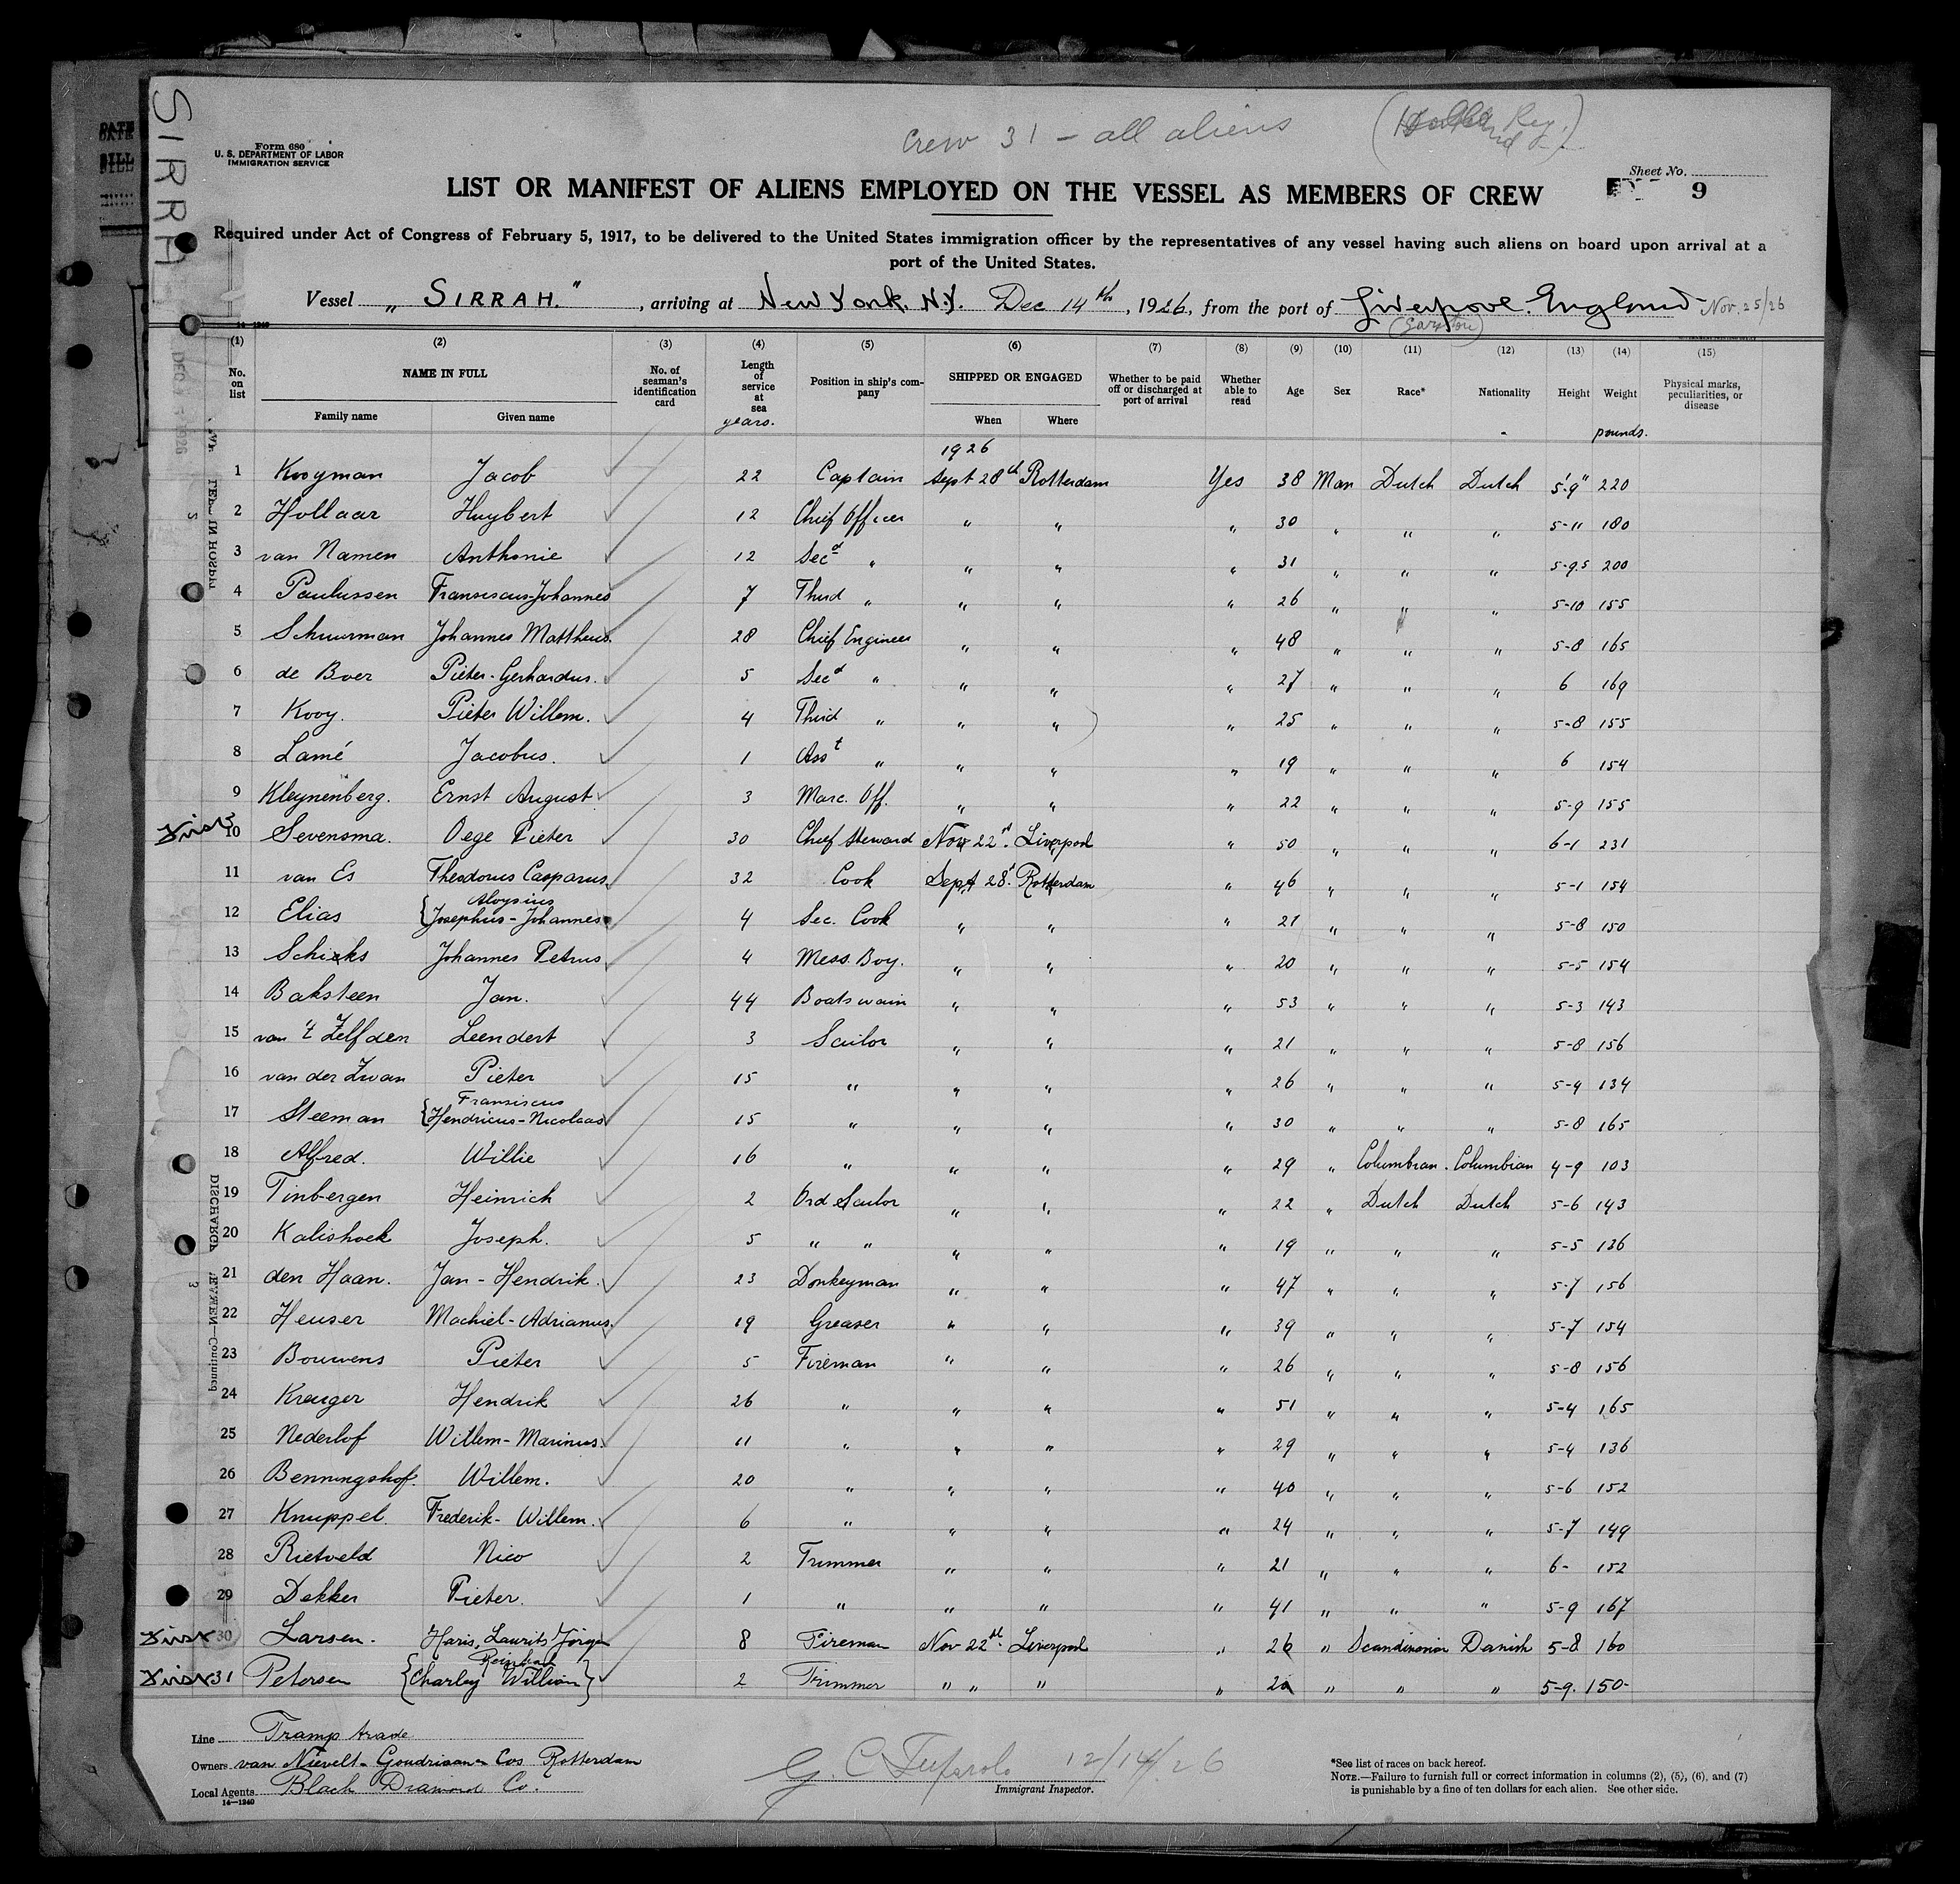 SIRRAH
Form 680
U. S. DEPARTMENT OF LABOR
IMMIGRATION SERVICE
Crew 31 - all aliens
Sheet No.
9
LIST OR MANIFEST OF ALIENS EMPLOYED ON THE VESSEL AS MEMBERS OF CREW
Required under Act of Congress of February 5, 1917, to be delivered to the United States immigration officer by the representatives of any vessel having such aliens on board upon arrival at a
port of the United States.
Vessel „ SIRRAH. ", arriving at New York, N.Y. Dec 14th, 1926, from the port of Liverpool. England Nov. 25/26
(Garston)
14-1240
(1) (2) (3) (4) (5) (6) (7) (8) (9) (10) (11) (12) (13) (14) (15)
No. on list NAME IN FULL Family name Given name No. of seaman's identification card Length of service at sea years. Position in ship's company SHIPPED OR ENGAGED When Where Whether to be paid off or discharged at port of arrival Whether able to read Age Sex Race* Nationality Height Weight pounds. Physical marks, peculiarities, or disease
1926
1 Kooyman Jacob 22 Captain Sept 28th Rotterdam Yes 38 Man Dutch Dutch 5'-9" 220
2 Hollaar Huybert 12 Chief Officer " " " 30 " " " 5-11 180
3 van Namen Anthonie 12 Secd " " " " 31 " " " 5-9.5 200
4 Paulussen Fransiscus-Johannes 7 Third " " " " 26 " " " 5-10 155
5 Schuurman Johannes Mattheus. 28 Chief Engineer " " " 48 " " " 5-8 165
6 de Boer Pieter-Gerhardus. 5 Secd " " " " 27 " " " 6 169
7 Kooy. Pieter Willem. 4 Third " " " " 25 " " " 5-8 155
8 Lamé Jacobus. 1 Asst " " " " 19 " " " 6 154
9 Kleynenberg. Ernst August 3 Marc. Off. " " " 22 " " " 5-9 155
10 Sevensma. Oege Pieter 30 Chief Steward Nov 22d. Liverpool " 50 " " " 6-1 231
11 van Es Theodorus Casparus 32 Cook Sept 28t. Rotterdam " 46 " " " 5-1 154
12 Elias {Aloysius
Josephus-Johannes 4 Sec. Cook " " " 21 " " " 5-8 150
13 Schicks Johannes Petrus 4 Mess. Boy. " " " 20 " " " 5-5 154
14 Baksteen Jan. 44 Boatswain " " " 53 " " " 5-3 143
15 van 't Zelfden Leendert 3 Sailor " " " 21 " " " 5-8 156
16 van der Zwan Pieter 15 " " " " 26 " " " 5-4 134
17 Steeman {Fransiscus
Hendricus-Nicolaas 15 " " " " 30 " " " 5-8 165
18 Alfred. Willie 16 " " " " 29 " Columbian. Columbian 4-9 103
19 Tinbergen Heinrich 2 Ord Sailor " " " 22 " Dutch Dutch 5-6 143
20 Kalishoek Joseph. 5 " " " " " 19 " " " 5-5 136
21 den Haan. Jan-Hendrik. 23 Donkeyman " " " 47 " " " 5-7 156
22 Heuser Machiel-Adrianus. 19 Greaser " " " 39 " " " 5-7 154
23 Bouwens Pieter 5 Fireman " " " 26 " " " 5-8 156
24 Kreuger Hendrik 26 " " " " 51 " " " 5-4 165
25 Nederlof Willem-Marinus. 11 " " " " 29 " " " 5-4 136
26 Benningshof. Willem. 20 " " " " 40 " " " 5-6 152
27 Knuppel Frederik-Willem. 6 " " " " 24 " " " 5-7 149
28 Rietveld Nico 2 Trimmer " " " 21 " " " 6- 152
29 Dekker Pieter. 1 " " " " 41 " " " 5-9 167
30 Larsen. Haris, Laurits Jörgen 8 Fireman Nov 22d. Liverpool " 26 " Scandinavia Danish 5-8 160
31 Petersen {Charley William} 2 Trimmer " " " " " " " 5-9. 150-
Line Tramp trade
Owners van Nievelt-Goudriaan & Cos Rotterdam
Local Agents Black Diamond Co.
14-1240
12/14/26
Immigrant Inspector.
*See list of races on back hereof.
NOTE.—Failure to furnish full or correct information in columns (2), (5), (6), and (7)
is punishable by a fine of ten dollars for each alien. See other side.